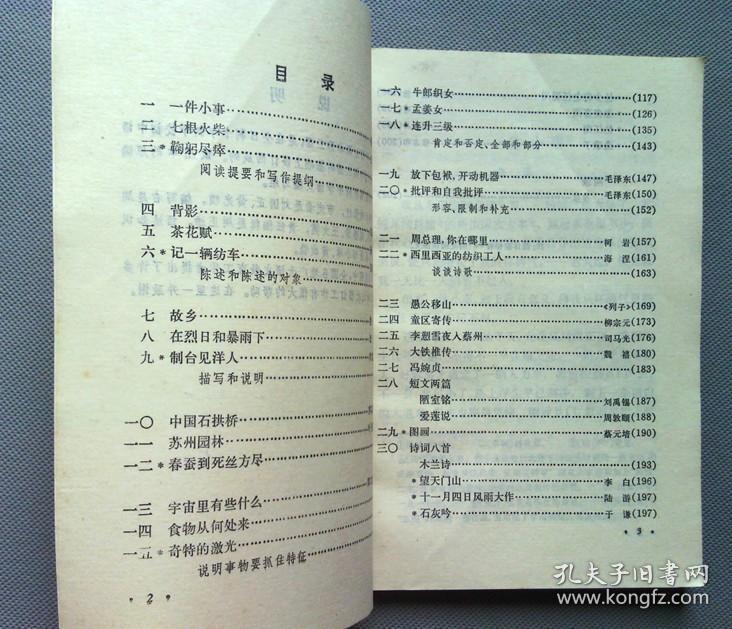 目录
一 一件小事
二 七根火柴
三 * 鞠躬尽瘁
阅读提要和写作提纲
四 背影
五 茶花赋
六 * 记一辆纺车
陈述和陈述的对象
七 故乡
八 在烈日和暴雨下
九 * 制台见洋人
描写和说明
一〇 中国石拱桥
一一 苏州园林
一二 * 春蚕到死丝方尽
一三 宇宙里有些什么
一四 食物从何处来
一五 * 奇特的激光
说明事物要抓住特征
· 2 ·
一六 牛郎织女 (117)
一七 * 孟姜女 (126)
一八 * 连升三级 (135)
肯定和否定、全部和部分 (143)
一九 放下包袱,开动机器 毛泽东 (147)
二〇 * 批评和自我批评 毛泽东 (150)
形容、限制和补充 (152)
二一 周总理,你在哪里 柯岩 (157)
二二 * 西里西亚的纺织工人 海涅 (161)
谈谈诗歌 (163)
二三 愚公移山 《列子》 (169)
二四 童区寄传 柳宗元 (173)
二五 李愬雪夜入蔡州 司马光 (176)
二六 大铁椎传 魏禧 (180)
二七 冯婉贞 (183)
二八 短文两篇
陋室铭 刘禹锡 (187)
爱莲说 周敦颐 (188)
二九 * 图画 蔡元培 (190)
三〇 诗词八首
木兰诗 (193)
* 望天门山 李白 (196)
* 十一月四日风雨大作 陆游 (197)
* 石灰吟 于谦 (197)
· 3 ·
孔夫子旧书网
www.kongfz.com